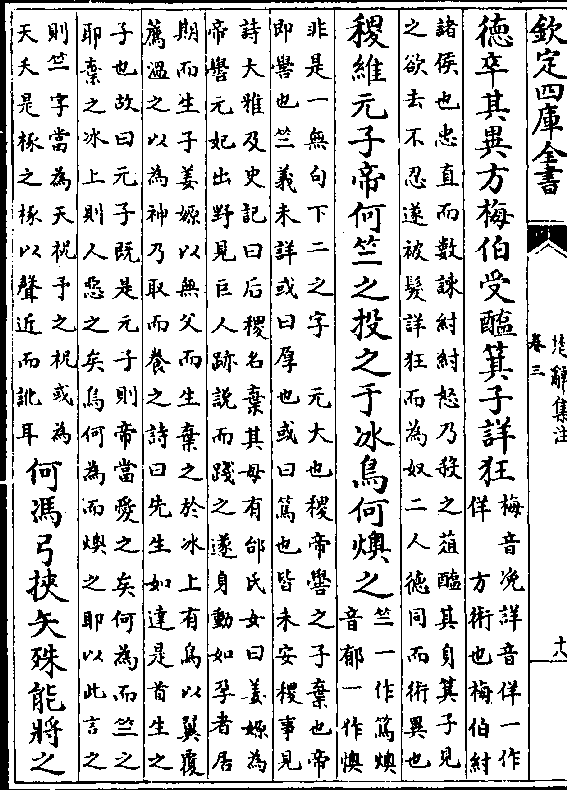 欽定四庫全書
楚辭集注
卷三
十八
德卒其異方梅伯受醢箕子詳狂
梅音浼詳音佯一作
佯 方術也梅伯紂
諸侯也忠直而數諫紂紂怒乃殺之葅醢其身箕子見
之欲去不忍遂被髮詳狂而為奴二人德同而術異也
稷維元子帝何竺之投之于冰鳥何燠之
竺一作篤燠
音郁一作燠
非是一無句下二之字 元大也稷帝嚳之子棄也帝
即嚳也竺義未詳或曰厚也或曰篤也皆未安稷事見
詩大雅及史記曰后稷名棄其母有邰氏女曰姜嫄為
帝嚳元妃出野見巨人跡說而踐之遂身動如孕者居
期而生子姜嫄以無父而生棄之於冰上有鳥以翼覆
薦溫之以為神乃取而養之詩曰先生如達是首生之
子也故曰元子既是元子則帝當愛之矣何為而竺之
耶棄之冰上則人惡之矣鳥何為而燠之耶以此言之
則竺字當為天祝予之祝或為
天夭是椓之椓以聲近而訛耳
何馮弓挾矢殊能將之